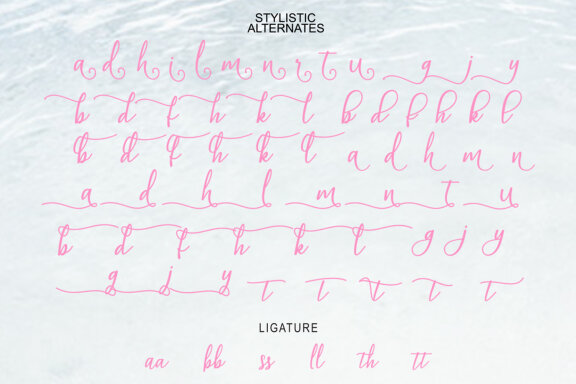 STYLISTIC
ALTERNATES
a d h i l m n r t u g j y
b d f h k l b d f h k l
b d f h k l a d h m n
a d h l m n t u
b d f h k l g j y
g j y t t t t t
LIGATURE
aa bb ss ll th tt